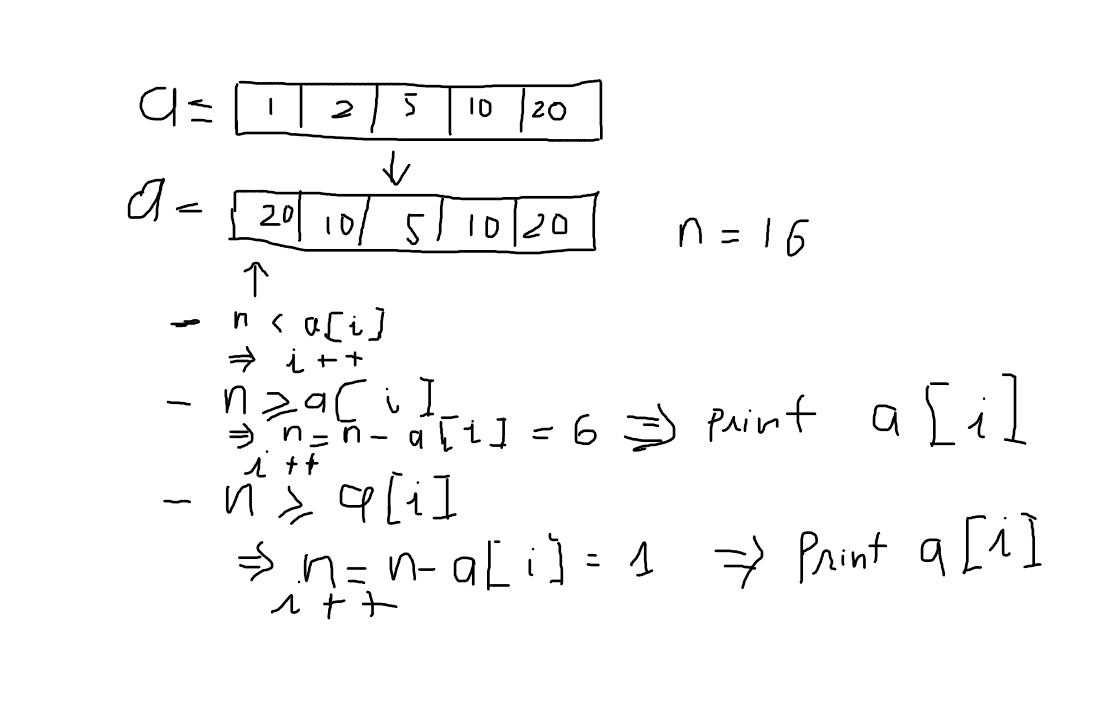 a = 1 2 5 10 20
↓
a = 20 10 5 10 20
n = 16
↑
- n < a[i]
⇒ i++
- n ⩾ a[i]
⇒ n = n - a[i] = 6 ⇒ print a[i]
i++
- n ⩾ a[i]
⇒ n = n - a[i] = 1 ⇒ Print a[i]
i++